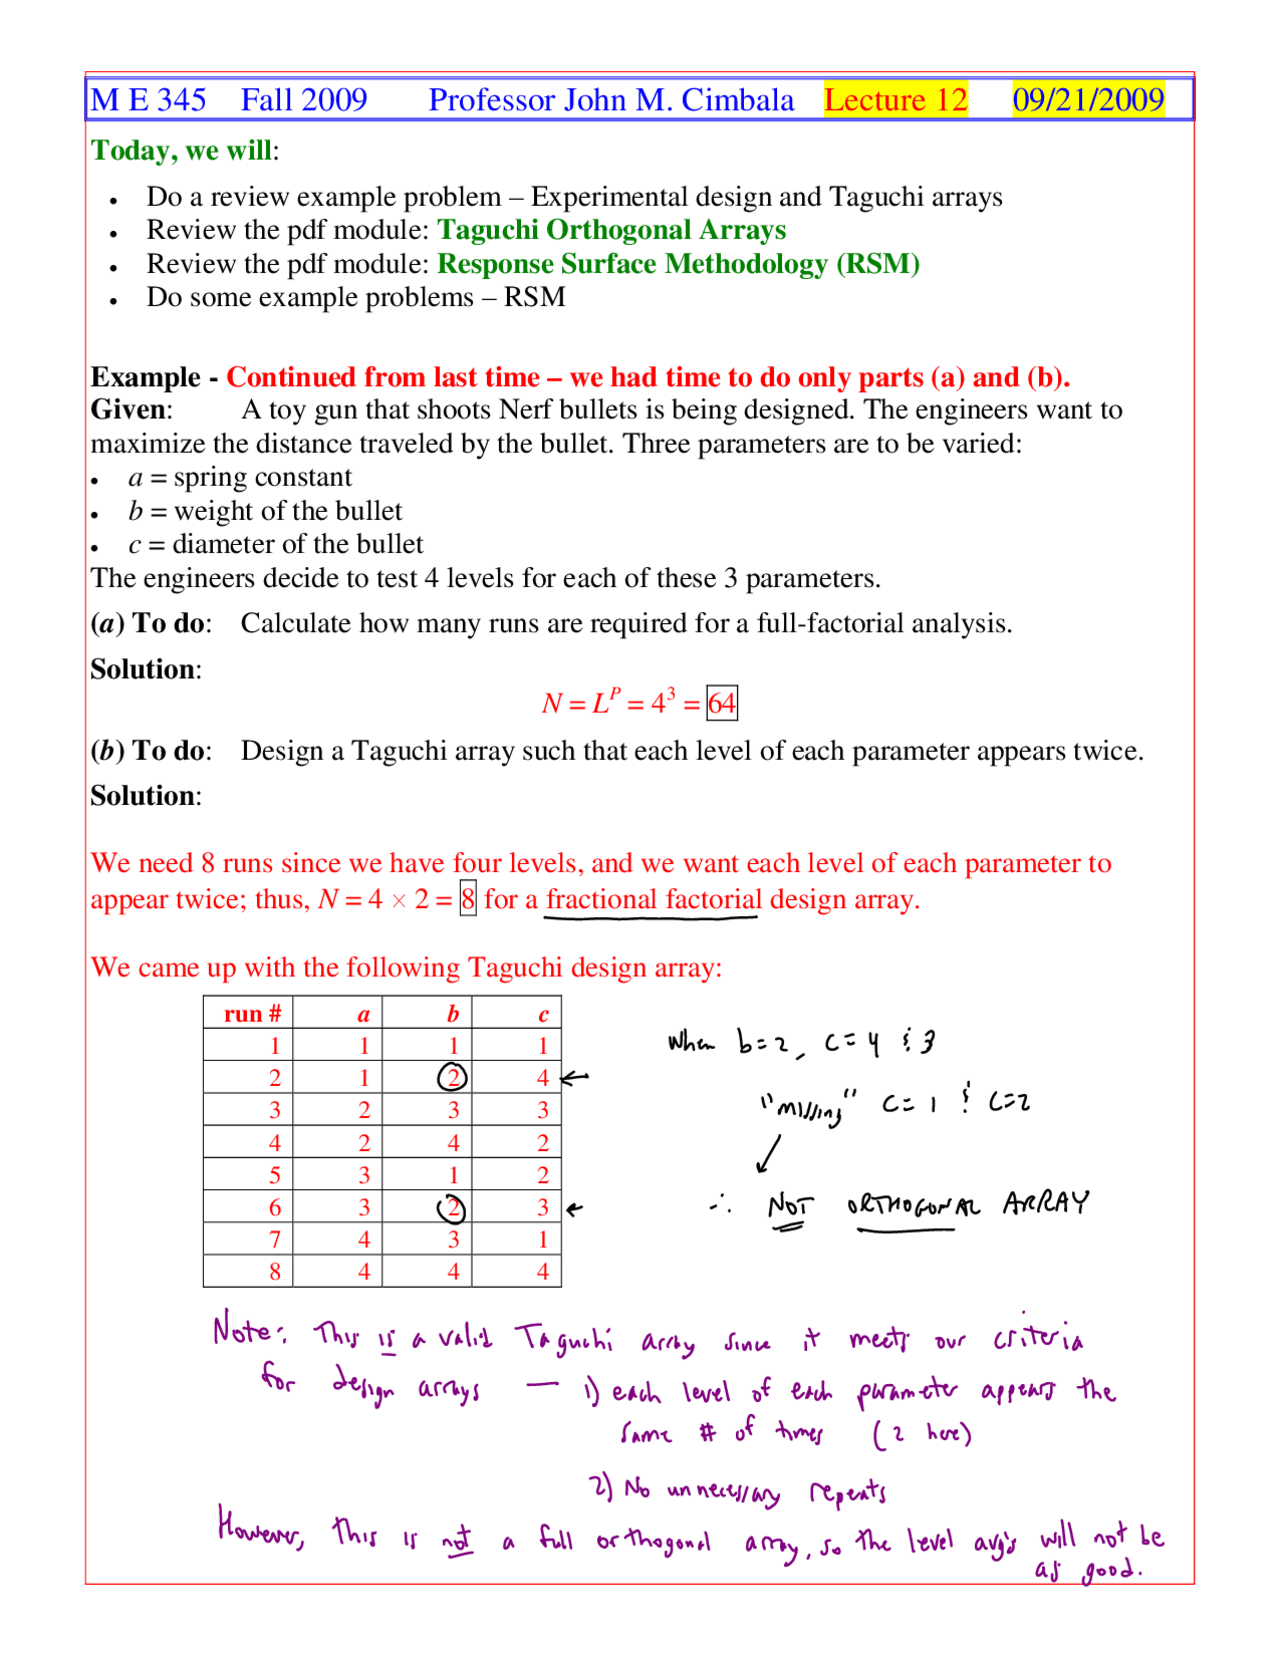 M E 345 Fall 2009 Professor John M. Cimbala Lecture 12 09/21/2009
Today, we will:
• Do a review example problem – Experimental design and Taguchi arrays
• Review the pdf module: Taguchi Orthogonal Arrays
• Review the pdf module: Response Surface Methodology (RSM)
• Do some example problems – RSM
Example - Continued from last time – we had time to do only parts (a) and (b).
Given: A toy gun that shoots Nerf bullets is being designed. The engineers want to
maximize the distance traveled by the bullet. Three parameters are to be varied:
• a = spring constant
• b = weight of the bullet
• c = diameter of the bullet
The engineers decide to test 4 levels for each of these 3 parameters.
(a) To do: Calculate how many runs are required for a full-factorial analysis.
Solution:
N = L^P = 4^3 = 64
(b) To do: Design a Taguchi array such that each level of each parameter appears twice.
Solution:
We need 8 runs since we have four levels, and we want each level of each parameter to
appear twice; thus, N = 4 × 2 = 8 for a fractional factorial design array.
We came up with the following Taguchi design array:
run # a b c
1 1 1 1
2 1 2 4 ←
3 2 3 3
4 2 4 2
5 3 1 2
6 3 2 3 ←
7 4 3 1
8 4 4 4
When b=2, c=4 & 3
"missing" c=1 & c=2
∴ NOT ORTHOGONAL ARRAY
Note: This is a valid Taguchi array since it meets our criteria
for design arrays — 1) each level of each parameter appears the
same # of times (2 here)
2) No unnecessary repeats
However, this is not a full orthogonal array, so the level avg's will not be
as good.